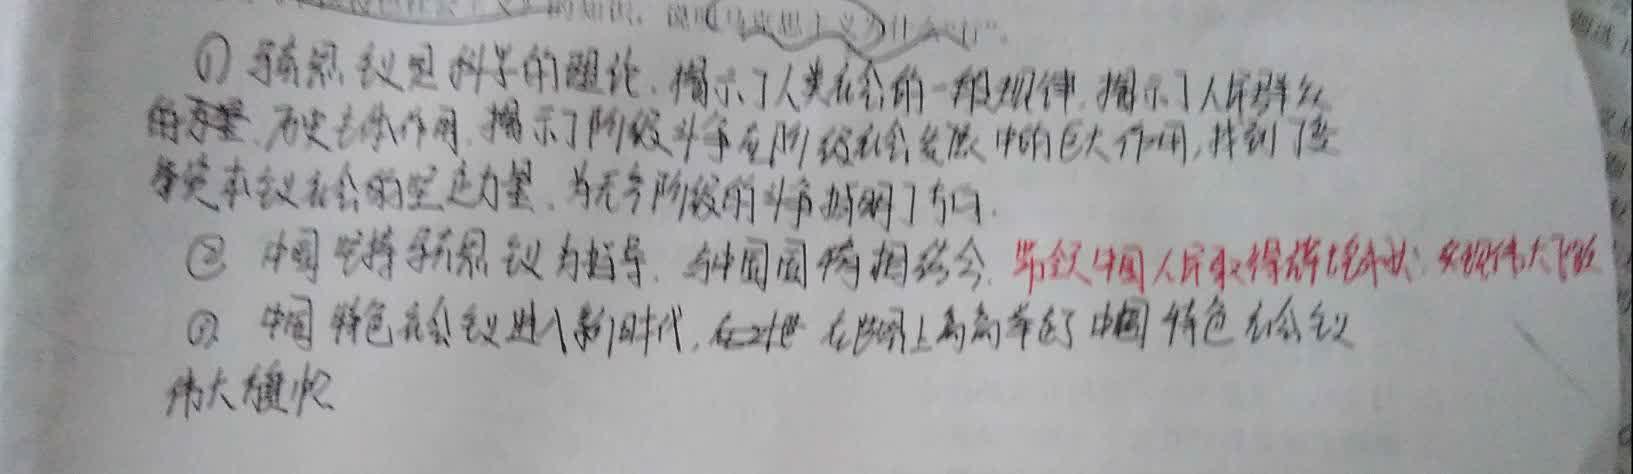 的知识，说明马克思主义为什么"行"。
① 马克思主义是科学的理论，揭示了人类社会的一般规律，揭示了人民群众
的历史主体作用，揭示了阶级斗争在阶级社会发展中的巨大作用，找到了
资本主义社会的掘墓力量，为无产阶级的斗争指明了方向.
② 中国坚持马克思主义为指导，与中国国情相结合，带领中国人民取得辉煌成就，实现伟大飞跃
③ 中国特色社会主义进入新时代，在21世 在世界上高高举起了中国特色社会主义
伟大旗帜